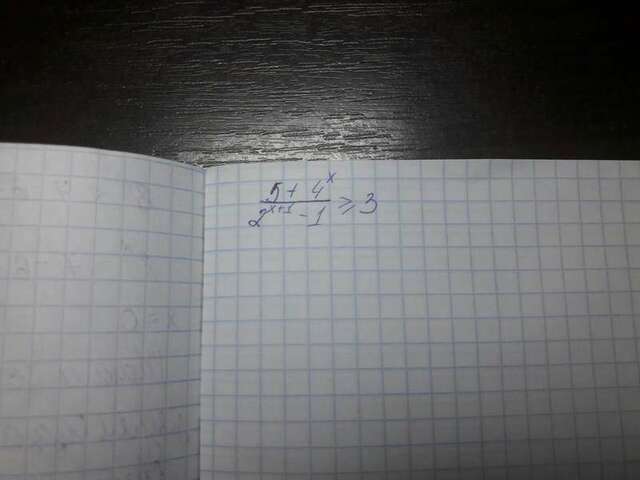 5 + 4^x
2^{x+1} - 1 ≥ 3